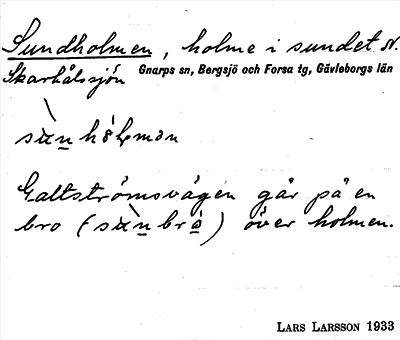 Sundholmen, holme i sundet N.
Skarhålssjön Gnarps sn, Bergsjö och Forsa tg, Gävleborgs län
Galtströmsvägen går på en
bro ( ) över holmen.
LARS LARSSON 1933